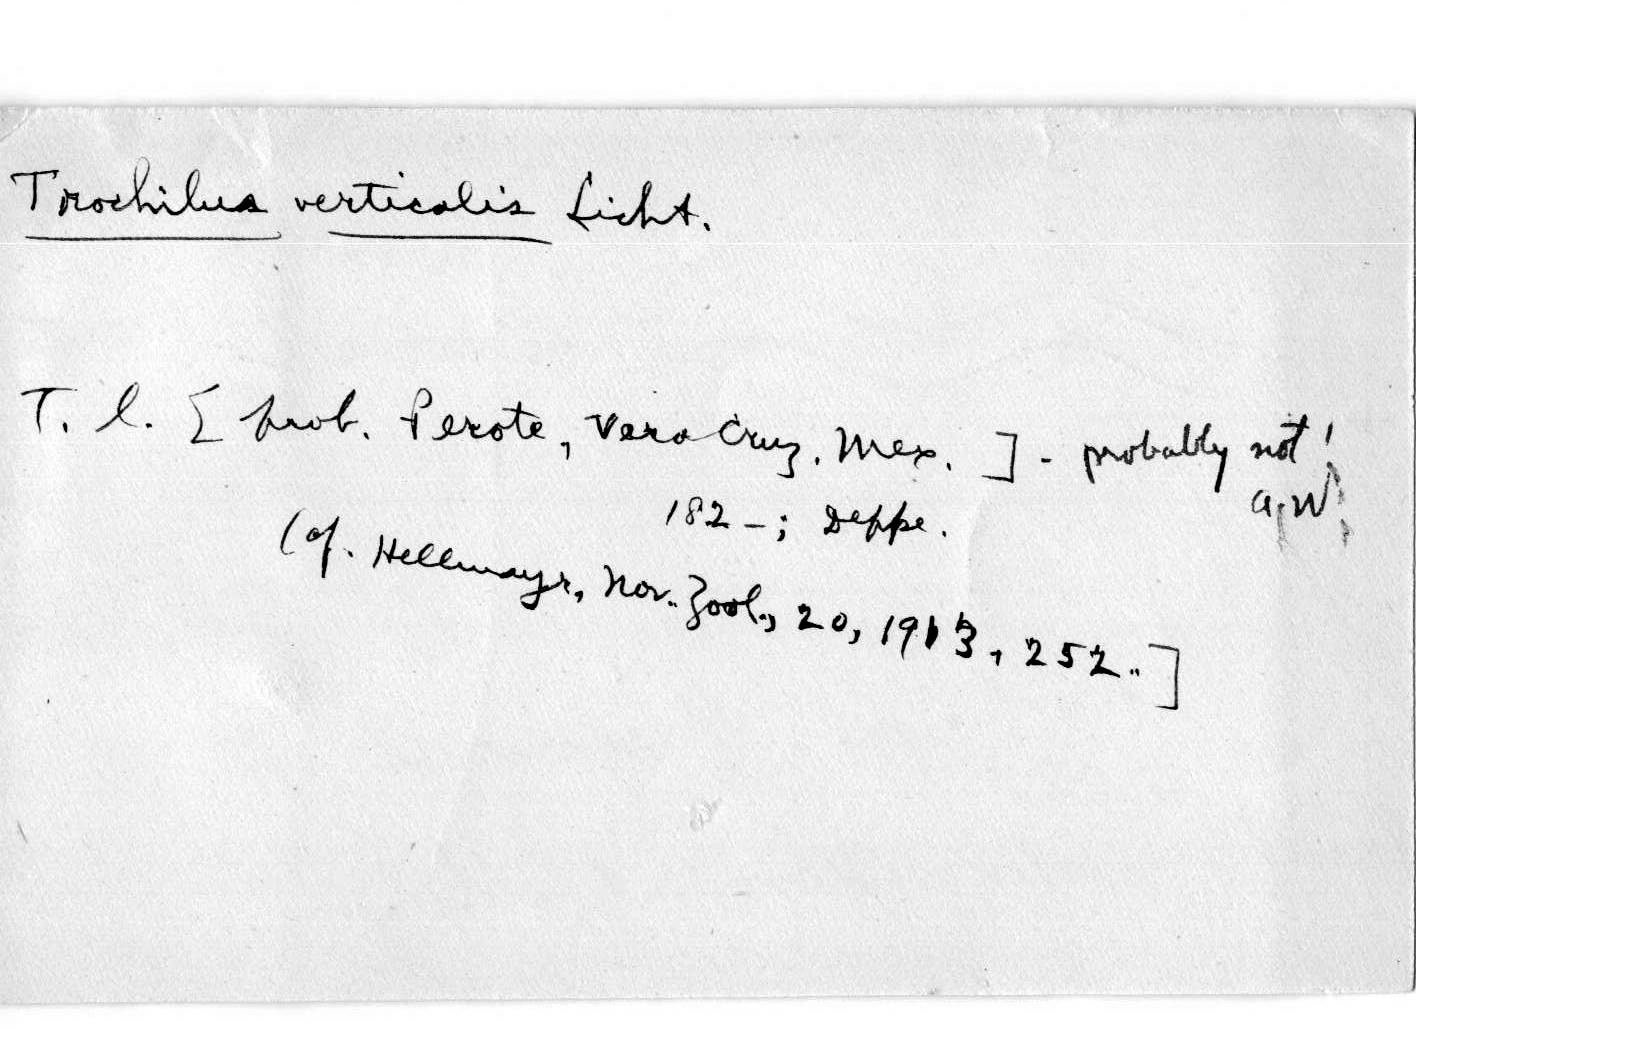 Trochilus verticalis Licht.
T. l. [ prob. Perote, Vera Cruz, Mex. ] - probably not!
a.w.
182-; Deppe.
(cf. Hellmayr, Nov. Zool., 20, 1913, 252.]